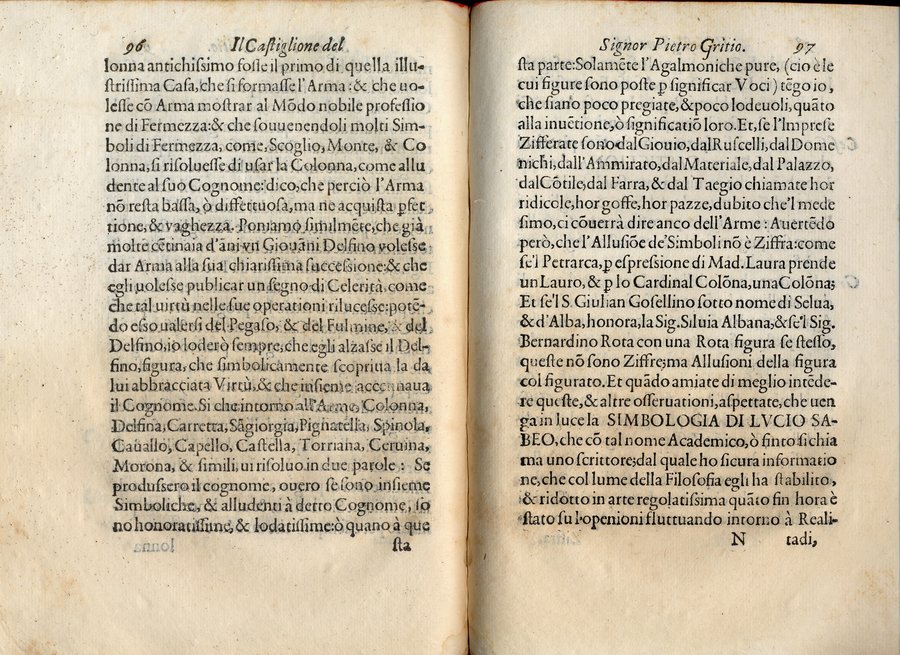 96 Il Castiglione del
lonna antichissimo fosse il primo di quella illu-
strissima Casa, che si formasse l'Arma: & che uo-
lesse cõ Arma mostrar al Mõdo nobile professio
ne di Fermezza: & che souuenendoli molti Sim-
boli di Fermezza, come, Scoglio, Monte, & Co
lonna, si risoluesse di usar la Colonna, come allu
dente al suo Cognome: dico, che perciò l'Arma
nõ resta bassa, ò diffettuosa, ma ne acquista ꝑfet
tione, & vaghezza. Poniamo similmẽte, che già
molte cẽtinaia d'ãni vn Giouãni Delfino volesse
dar Arma alla sua chiarissima successione: & che
egli uolesse publicar un segno di Celerità, come
che tal uirtù nelle sue operationi rilucesse: potẽ-
do esso ualersi del Pegaso, & del Fulmine, & del
Delfino, io loderò sempre, che egli alzasse il Del-
fino, figura, che simbolicamente scopriua la da
lui abbracciata Virtù, & che insieme accennaua
il Cognome. Si che intorno all'Arme, Colonna,
Delfina, Carretta, Sãgiorgia, Pignatella, Spinola,
Cauallo, Capello, Castella, Torriana, Ceruina,
Morona, & simili, ui risoluo in due parole: Se
produssero il cognome, ouero se sono insieme
Simboliche, & alludenti à detto Cognome, so
no honoratissime, & lodatissime: ò quano à que
sta
Signor Pietro Gritio. 97
sta parte: Solamẽte l'Agalmoniche pure, (cio è le
cui figure sono poste ꝑ significar Voci) tẽgo io,
che siano poco pregiate, & poco lodeuoli, quãto
alla inuẽtione, ò significatiõ loro. Et, se l'Imprese
Zifferate sono dal Giouio, dal Ruscelli, dal Dome
nichi, dall'Ammirato, dal Materiale, dal Palazzo,
dal Cõtile, dal Farra, & dal Taegio chiamate hor
ridicole, hor goffe, hor pazze, dubito che'l mede
simo, ci cõuerrà dire anco dell'Arme: Auertẽdo
però, che l'Allusiõe de' Simboli nõ è Ziffra: come
se'l Petrarca, ꝑ espressione di Mad. Laura prende
un Lauro, & ꝑ lo Cardinal Colõna, una Colõna;
Et se'l S. Giulian Gosellino sotto nome di Selua,
& d'Alba, honora, la Sig. Siluia Albana; & se'l Sig.
Bernardino Rota con una Rota figura se stesso,
queste nõ sono Ziffre; ma Allusioni della figura
col figurato. Et quãdo amiate di meglio intẽde-
re queste, & altre osseruationi, aspettate, che uen
ga in luce la SIMBOLOGIA DI LVCIO SA-
BEO, che cõ tal nome Academico, ò finto si chia
ma uno scrittore; dal quale ho sicura informatio
ne, che col lume della Filosofia egli ha stabilito,
& ridotto in arte regolatissima quãto fin hora è
stato su l'openioni fluttuando intorno à Reali-
N tadi,